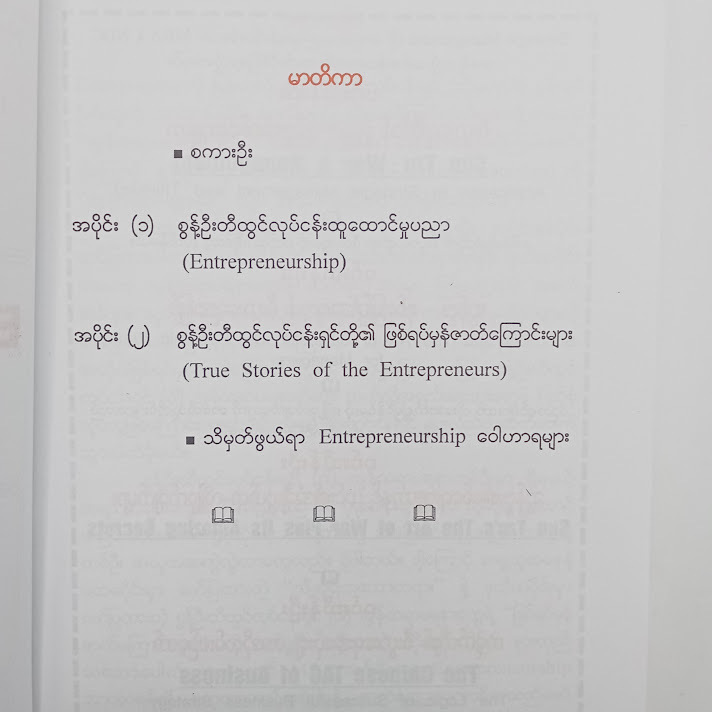 မာတိကာ
■ စကားဦး
အပိုင်း (၁) စွန့်ဦးတီထွင်လုပ်ငန်းထူထောင်မှုပညာ
(Entrepreneurship)
အပိုင်း (၂) စွန့်ဦးတီထွင်လုပ်ငန်းရှင်တို့၏ ဖြစ်ရပ်မှန်ဇာတ်ကြောင်းများ
(True Stories of the Entrepreneurs)
■ သိမှတ်ဖွယ်ရာ Entrepreneurship ဝေါဟာရများ